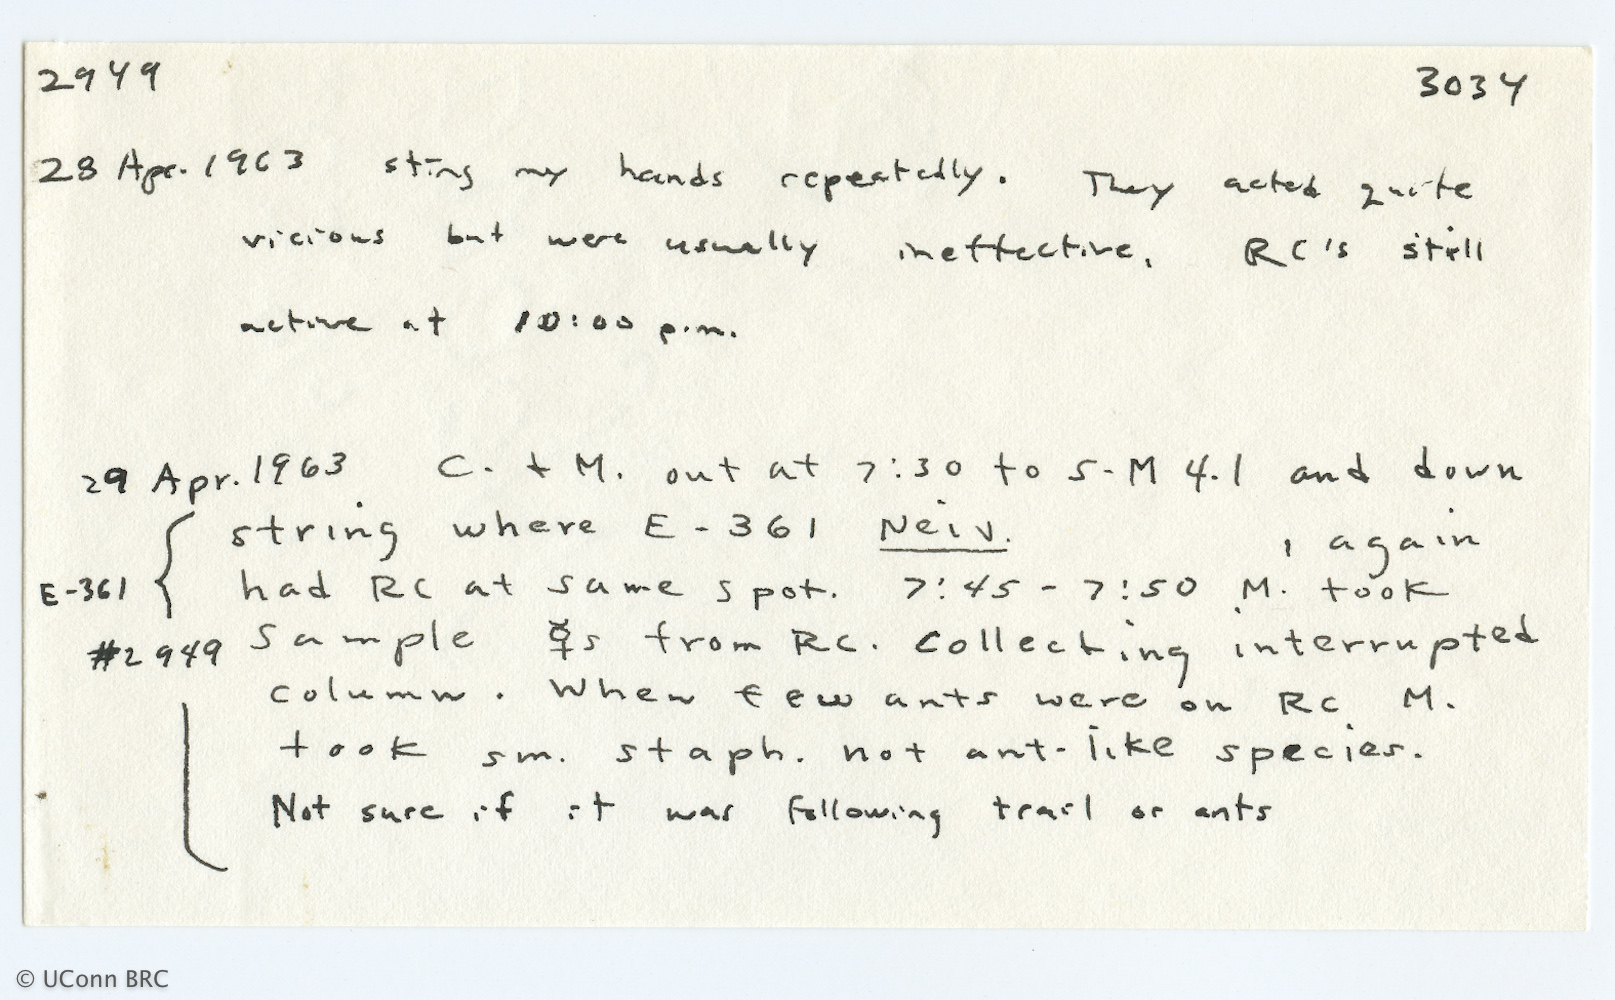 2949 3034
28 Apr. 1963 sting my hands repeatedly. They acted quite
vicious but were usually ineffective. RC's still
active at 10:00 p.m.
29 Apr. 1963 C. + M. out at 7:30 to S-M 4.1 and down
string where E-361 Neiv. , again
E-361 had RC at same spot. 7:45 - 7:50 M. took
#2949 sample ☿s from RC. Collecting interrupted
column. When few ants were on RC M.
took sm. staph. not ant-like species.
Not sure if it was following trail or ants
© UConn BRC